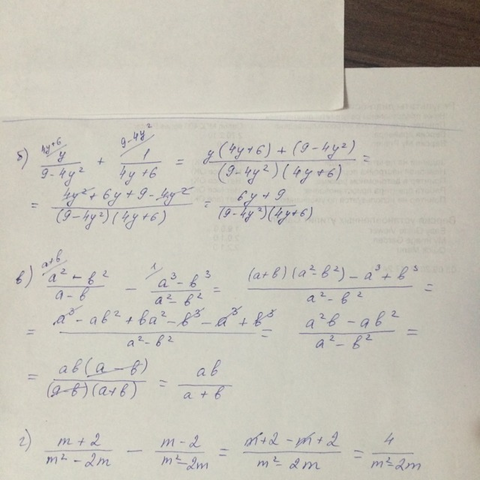 б) ^{4y+6/} y/(9-4y²) + ^{9-4y²/} 1/(4y+6) = (y(4y+6)+(9-4y²))/((9-4y²)(4y+6)) =
= (4y²+6y+9-4y²)/((9-4y²)(4y+6)) = (6y+9)/((9-4y²)(4y+6))
в) ^{a+b/} (a²-b²)/(a-b) - ^{1/} (a³-b³)/(a²-b²) = ((a+b)(a²-b²)-a³+b³)/(a²-b²) =
= (a³-ab²+ba²-b³-a³+b³)/(a²-b²) = (a²b-ab²)/(a²-b²) =
= ab(a-b)/((a-b)(a+b)) = ab/(a+b)
г) (m+2)/(m²-2m) - (m-2)/(m²-2m) = (m+2-m+2)/(m²-2m) = 4/(m²-2m)